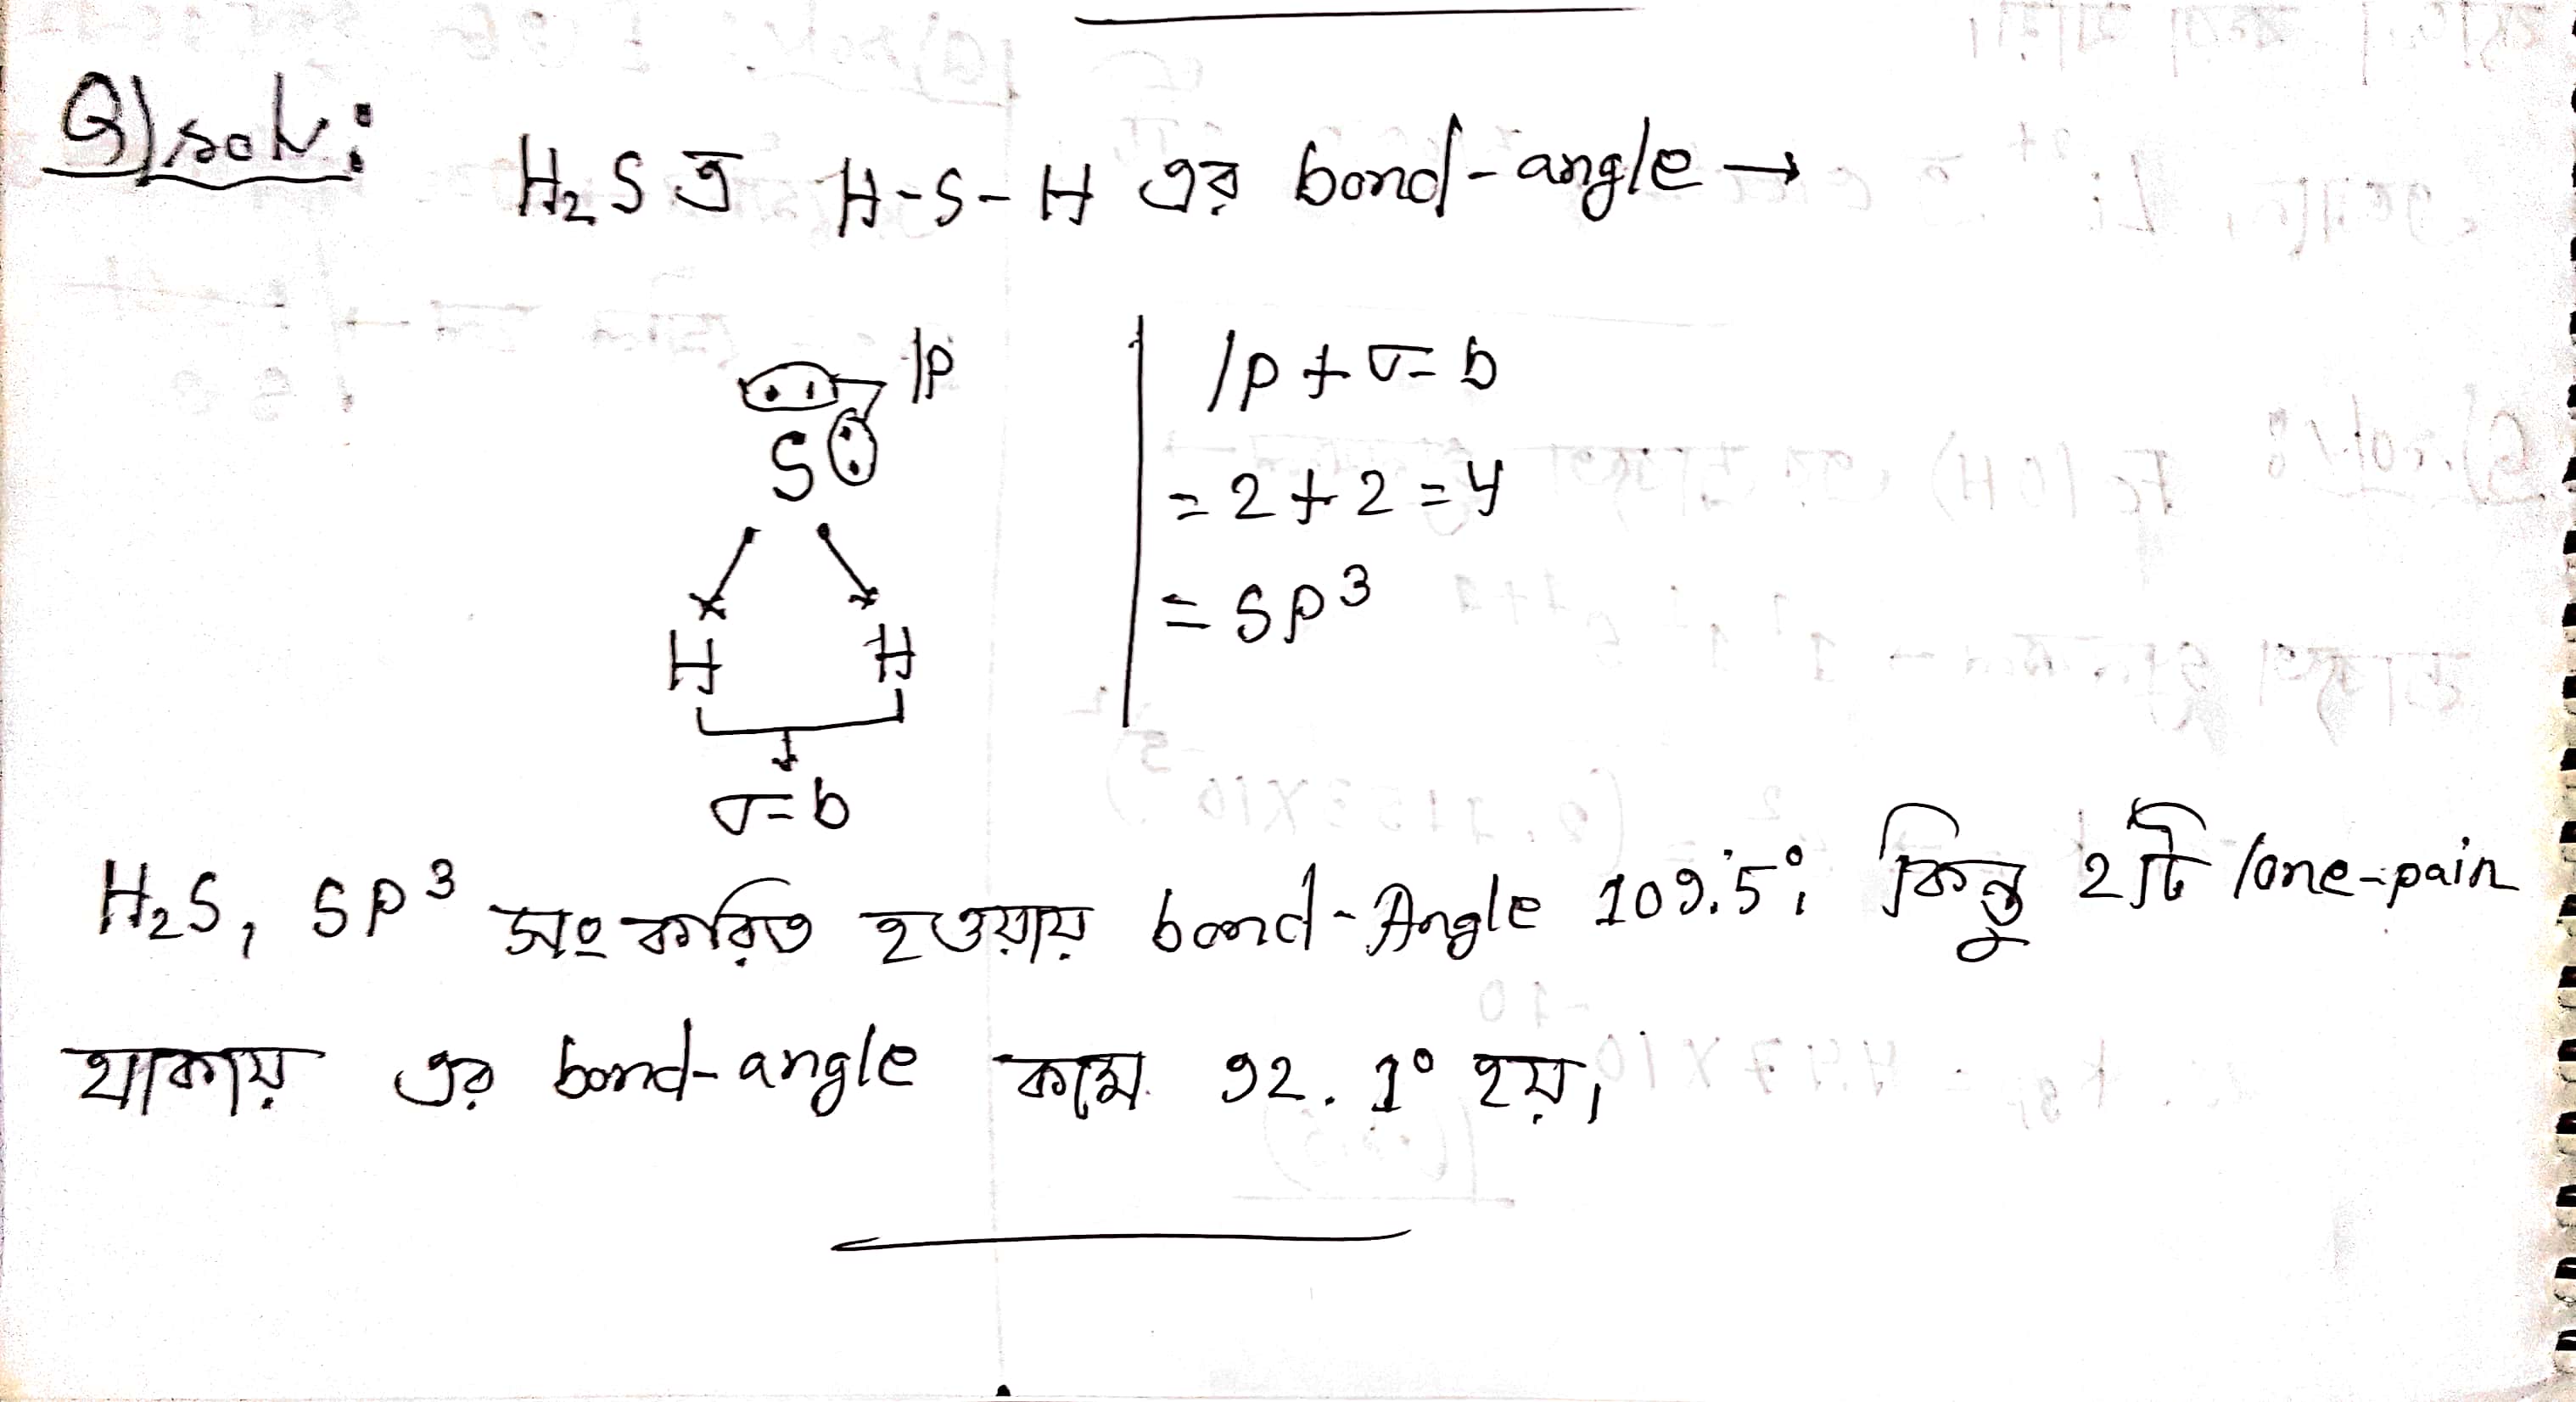 Q) solv:
H₂S এ H-S-H এর bond-angle →
lp
S
H H
σ-b
lp + σ-b
= 2 + 2 = 4
= SP³
H₂S, SP³ সংকরিত হওয়ায় bond-Angle 109.5°, কিন্তু 2টি lone-pair
থাকায় এর bond-angle কমে 92.1° হয়,